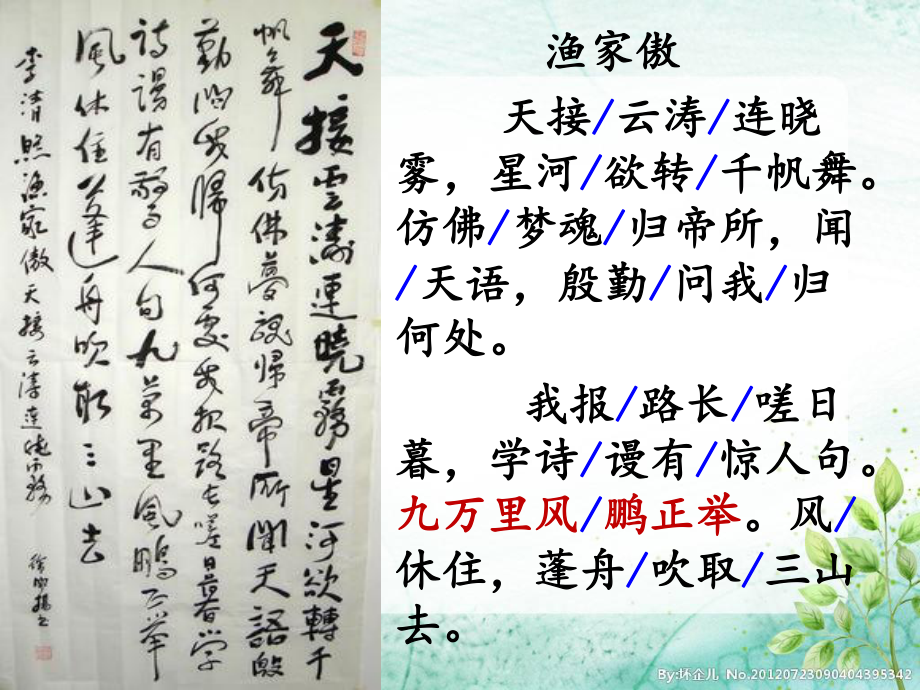 天接雲濤連曉霧星河欲轉千
帆舞仿佛夢魂歸帝所聞天語殷
勤問我歸何處我报路長嗟日暮学
詩謾有驚人句九萬里風鵬正举
風休住蓬舟吹取三山去
李清照漁家傲天接云濤連曉霧
渔家傲
天接/云涛/连晓
雾，星河/欲转/千帆舞。
仿佛/梦魂/归帝所，闻
/天语，殷勤/问我/归
何处。
我报/路长/嗟日
暮，学诗/谩有/惊人句。
九万里风/鹏正举。风/
休住，蓬舟/吹取/三山
去。
By:坏企儿 No.20120723090404395342